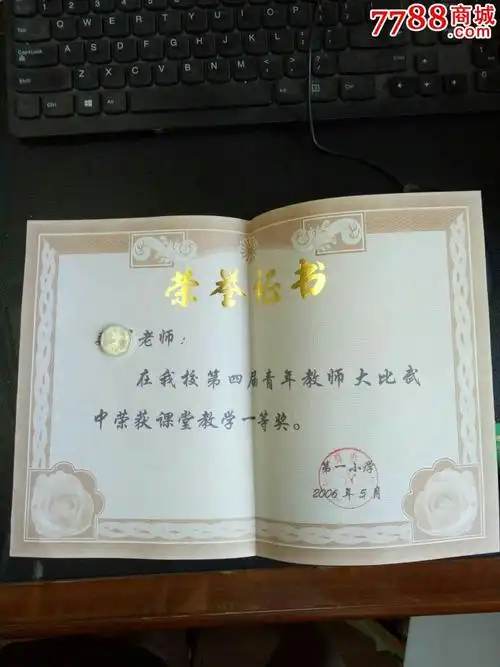 7788商城
.com
荣誉证书
老师：
在我校第四届青年教师大比武
中荣获课堂教学一等奖。
第一小学
2006年5月